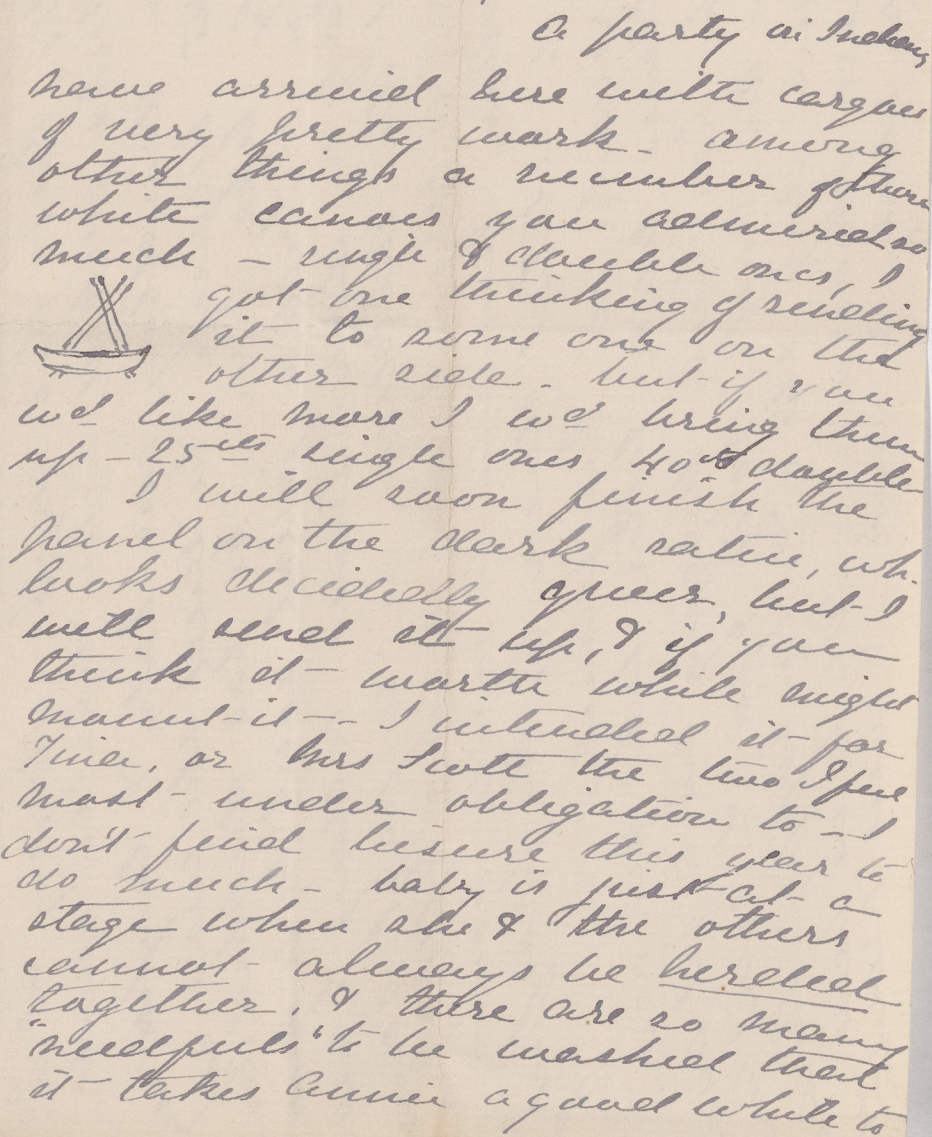 a party of Indians
have arrived here with cargoes
of very pretty work - among
other things a number of those
white canoes you admired so
much - single & double ones, I
got one thinking of sending
it to some one on the
other side - but if you
wd like more I wd bring them
up - 25cts single ones 40cts double
I will soon finish the
panel on the dark satin, wh.
looks decidedly queer, but I
will send it up, & if you
think it worth while might
mount it - I intended it for
Tina, or Mrs Scott the two I feel
most under obligation to - I
don't find leisure this year to
do much - baby is just at a
stage when she & the others
cannot always be herded
together, & there are so many
"needfuls" to be washed that
it takes Annie a good while to